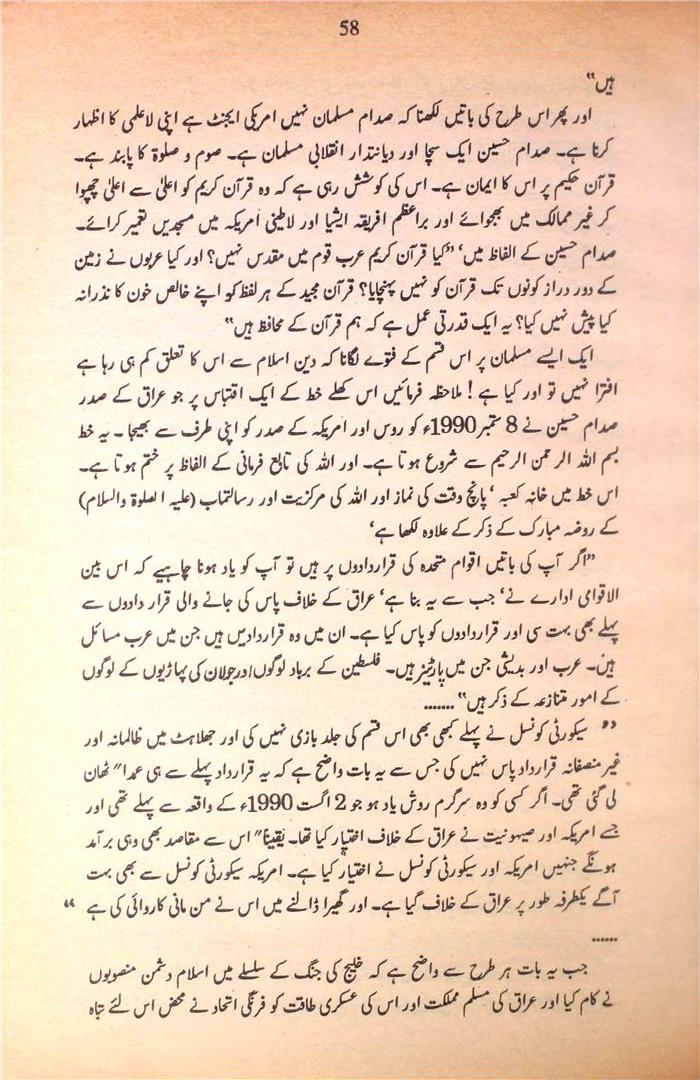 58
ہیں"
اور پھر اس طرح کی باتیں لکھنا کہ صدام مسلمان نہیں امریکی ایجنٹ ہے اپنی لاعلمی کا اظہار
کرنا ہے۔ صدام حسین ایک سچا اور دیانتدار انقلابی مسلمان ہے۔ صوم و صلوٰۃ کا پابند ہے۔
قرآن حکیم پر اس کا ایمان ہے۔ اس کی کوشش رہی ہے کہ وہ قرآن کریم کو اعلیٰ سے اعلیٰ چھپوا
کر غیر ممالک میں بھجوائے اور براعظم افریقہ ایشیا اور لاطینی امریکہ میں مسجدیں تعمیر کرائے۔
صدام حسین کے الفاظ میں، "کیا قرآن کریم عرب قوم میں مقدس نہیں؟ اور کیا عربوں نے زمین
کے دور دراز کونوں تک قرآن کو نہیں پہنچایا؟ قرآن مجید کے ہر لفظ کو اپنے خالص خون کا نذرانہ
کیا پیش نہیں کیا؟ یہ ایک قدرتی عمل ہے کہ ہم قرآن کے محافظ ہیں"
ایک ایسے مسلمان پر اس قسم کے فتوے لگانا کہ دین اسلام سے اس کا تعلق کم ہی رہا ہے
افترا نہیں تو اور کیا ہے! ملاحظہ فرمائیں اس کھلے خط کے ایک اقتباس پر جو عراق کے صدر
صدام حسین نے 8 ستمبر 1990ء کو روس اور امریکہ کے صدر کو اپنی طرف سے بھیجا۔ یہ خط
بسم اللہ الرحمن الرحیم سے شروع ہوتا ہے۔ اور اللہ کی تابع فرمانی کے الفاظ پر ختم ہوتا ہے۔
اس خط میں خانہ کعبہ، پانچ وقت کی نماز اور اللہ کی مرکزیت اور رسالتماب (علیہ الصلوۃ والسلام)
کے روضہ مبارک کے ذکر کے علاوہ لکھا ہے،
"اگر آپ کی باتیں اقوام متحدہ کی قراردادوں پر ہیں تو آپ کو یاد ہونا چاہیے کہ اس بین
الاقوامی ادارے نے، جب سے یہ بنا ہے، عراق کے خلاف پاس کی جانے والی قرار دادوں سے
پہلے بھی بہت سی اور قراردادوں کو پاس کیا ہے۔ ان میں وہ قراردادیں ہیں جن میں عرب مسائل
ہیں۔ عرب اور بدیشی جن میں پارٹیز ہیں۔ فلسطین کے برباد لوگوں اور جولان کی پہاڑیوں کے لوگوں
کے امور متنازعہ کے ذکر ہیں" .......
" سیکورٹی کونسل نے پہلے کبھی بھی اس قسم کی جلد بازی نہیں کی اور جھلاہٹ میں ظالمانہ اور
غیر منصفانہ قرارداد پاس نہیں کی جس سے یہ بات واضح ہے کہ یہ قرارداد پہلے سے ہی عمداً ٹھان
لی گئی تھی۔ اگر کسی کو وہ سرگرم روش یاد ہو جو 2 اگست 1990ء کے واقعہ سے پہلے تھی اور
جسے امریکہ اور صیہونیت نے عراق کے خلاف اختیار کیا تھا۔ یقیناً اس سے مقاصد بھی وہی برآمد
ہونگے جنہیں امریکہ اور سیکورٹی کونسل نے اختیار کیا ہے۔ امریکہ سیکورٹی کونسل سے بھی بہت
آگے یکطرفہ طور پر عراق کے خلاف گیا ہے۔ اور گھیرا ڈالنے میں اس نے من مانی کاروائی کی ہے "
......
جب یہ بات ہر طرح سے واضح ہے کہ خلیج کی جنگ کے سلسلے میں اسلام دشمن منصوبوں
نے کام کیا اور عراق کی مسلم مملکت اور اس کی عسکری طاقت کو فرنگی اتحاد نے محض اس لئے تباہ